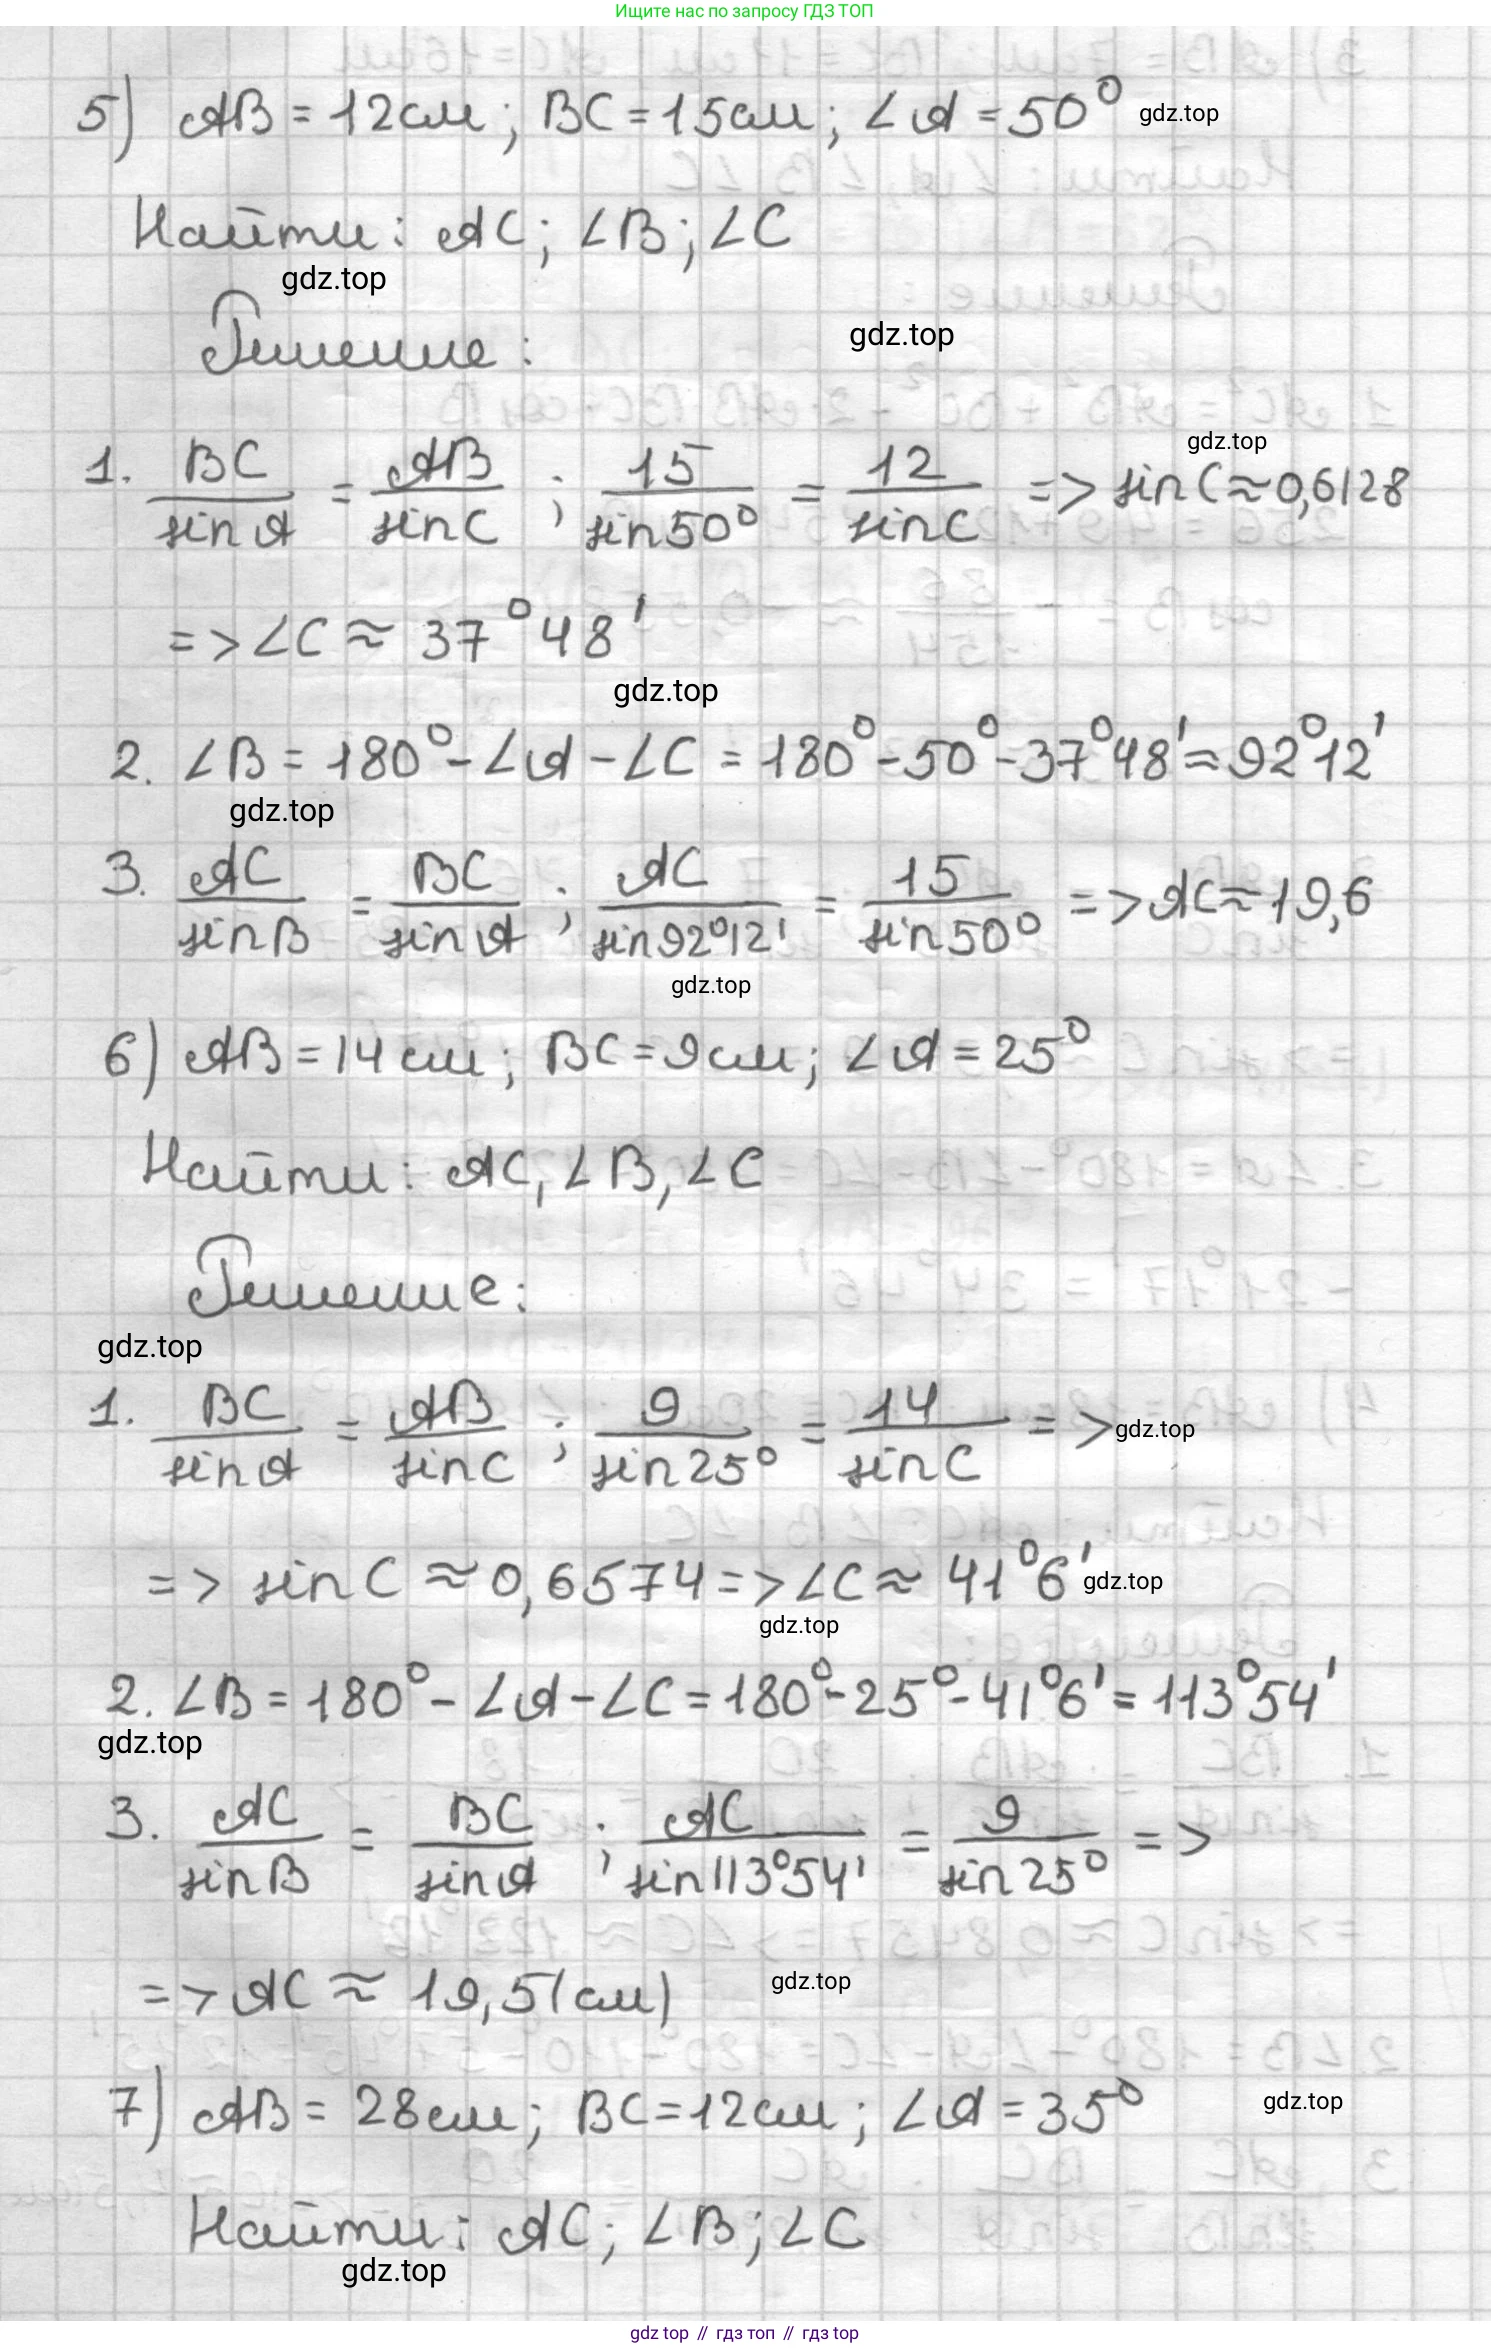 Ищите нас по запросу ГДЗ ТОП
5) AB = 12см; BC = 15см; ∠A = 50° gdz.top
Найти: AC; ∠B; ∠C
gdz.top
Решение: gdz.top
gdz.top
1. BC/sin A = AB/sin C; 15/sin 50° = 12/sin C => sin C ≈ 0,6128
=> ∠C ≈ 37°48'
gdz.top
2. ∠B = 180° - ∠A - ∠C = 180° - 50° - 37°48' ≈ 92°12'
gdz.top
3. AC/sin B = BC/sin A; AC/sin 92°12' = 15/sin 50° => AC ≈ 19,6
gdz.top
6) AB = 14 см; BC = 9см; ∠A = 25°
Найти: AC, ∠B, ∠C
Решение:
gdz.top
1. BC/sin A = AB/sin C; 9/sin 25° = 14/sin C => gdz.top
=> sin C ≈ 0,6574 => ∠C ≈ 41°6' gdz.top
gdz.top
2. ∠B = 180° - ∠A - ∠C = 180° - 25° - 41°6' = 113°54'
gdz.top
3. AC/sin B = BC/sin A; AC/sin 113°54' = 9/sin 25° =>
=> AC ≈ 19,5 (см) gdz.top
7) AB = 28см; BC = 12см; ∠A = 35° gdz.top
Найти: AC; ∠B; ∠C
gdz.top
gdz top // гдз топ // гдз top